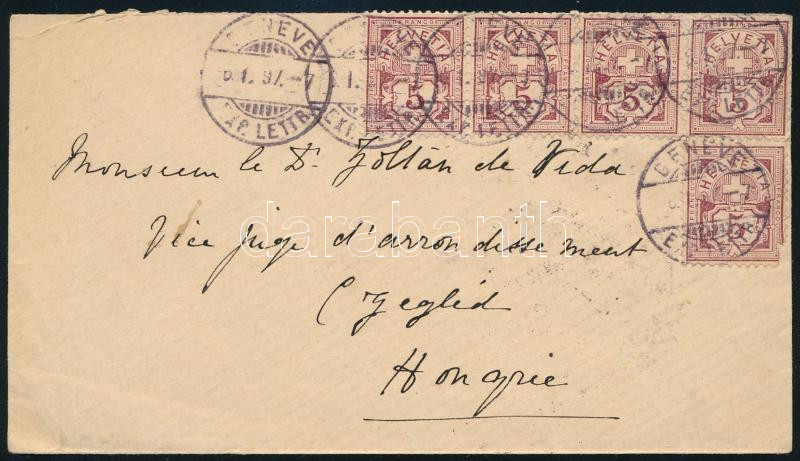 GENEVE
6.1.97.-7
EXP. LETTR.
FRANCO
HELVETIA
5
HELVETIA
5
HELVETIA
5
HELVETIA
5
GENEVE
HELVETIA
5
Monsieur le Dr Zoltán de Vida
Vice juge d'arrondissement
Czegléd
Hongrie
darabanth